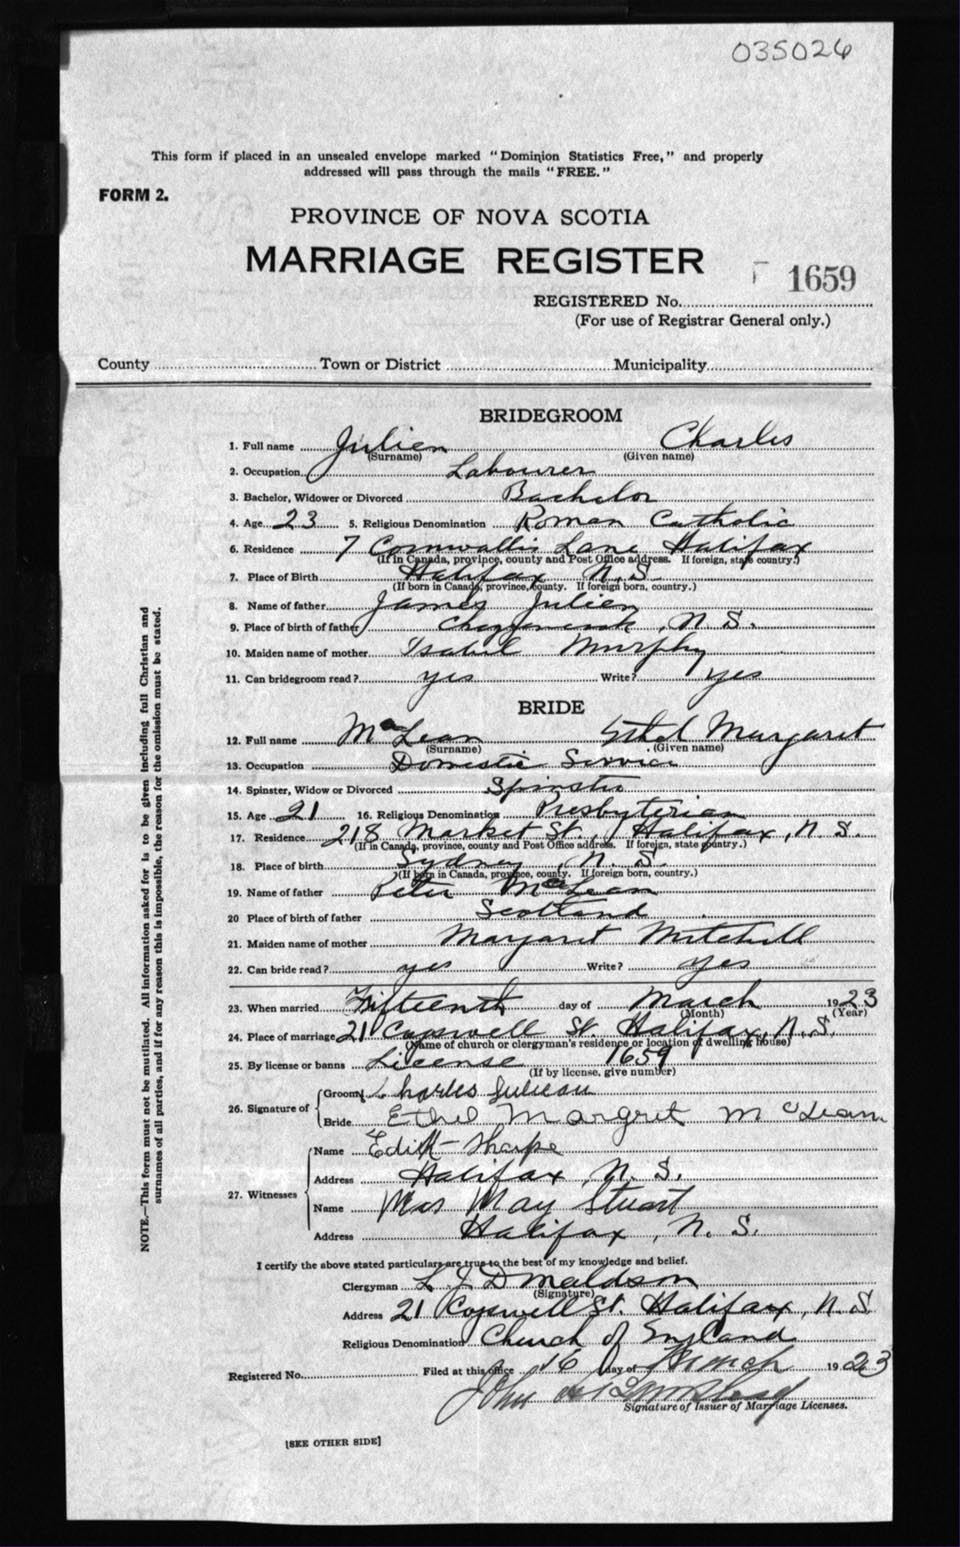 035026
This form if placed in an unsealed envelope marked "Dominion Statistics Free," and properly
addressed will pass through the mails "FREE."
FORM 2.
PROVINCE OF NOVA SCOTIA
MARRIAGE REGISTER
1659
REGISTERED No.
(For use of Registrar General only.)
County Town or District Municipality
BRIDEGROOM
1. Full name Julien Charles
(Surname) (Given name)
2. Occupation Labourer
3. Bachelor, Widower or Divorced Bachelor
4. Age 23 5. Religious Denomination Roman Catholic
6. Residence 7 Cornwallis Lane Halifax
(If in Canada, province, county and Post Office address. If foreign, state country.)
7. Place of Birth Halifax N.S.
(If born in Canada, province, county. If foreign born, country.)
8. Name of father James Julien
9. Place of birth of father N.S.
10. Maiden name of mother Isabel Murphy
11. Can bridegroom read? yes Write? yes
BRIDE
12. Full name McLean Ethel Margaret
(Surname) (Given name)
13. Occupation Domestic Service
14. Spinster, Widow or Divorced Spinster
15. Age 21 16. Religious Denomination Presbyterian
17. Residence 218 Market St., Halifax, N.S.
(If in Canada, province, county and Post Office address. If foreign, state country.)
18. Place of birth Sydney, N.S.
(If born in Canada, province, county. If foreign born, country.)
19. Name of father Peter McLean
20 Place of birth of father Scotland
21. Maiden name of mother Margaret Mitchell
22. Can bride read? yes Write? yes
23. When married Fifteenth day of March 1923
(Month) (Year)
24. Place of marriage 21 Cogswell St. Halifax, N.S.
(Name of church or clergyman's residence or location of dwelling house)
25. By license or banns License 1659
(If by license, give number)
26. Signature of
Groom Charles Julieau
Bride Ethel Margret McLean
27. Witnesses
Name Edith Sharpe
Address Halifax, N.S.
Name Mrs May Stuart
Address Halifax, N.S.
I certify the above stated particulars are true to the best of my knowledge and belief.
Clergyman L. J. Donaldson
(Signature)
Address 21 Cogswell St. Halifax, N.S.
Religious Denomination Church of England
Registered No. Filed at this office 16 day of March 1923
John
Signature of Issuer of Marriage Licenses.
[SEE OTHER SIDE]
NOTE.—This form must not be mutilated. All information asked for is to be given including full Christian and
surnames of all parties, and if for any reason this is impossible, the reason for the omission must be stated.